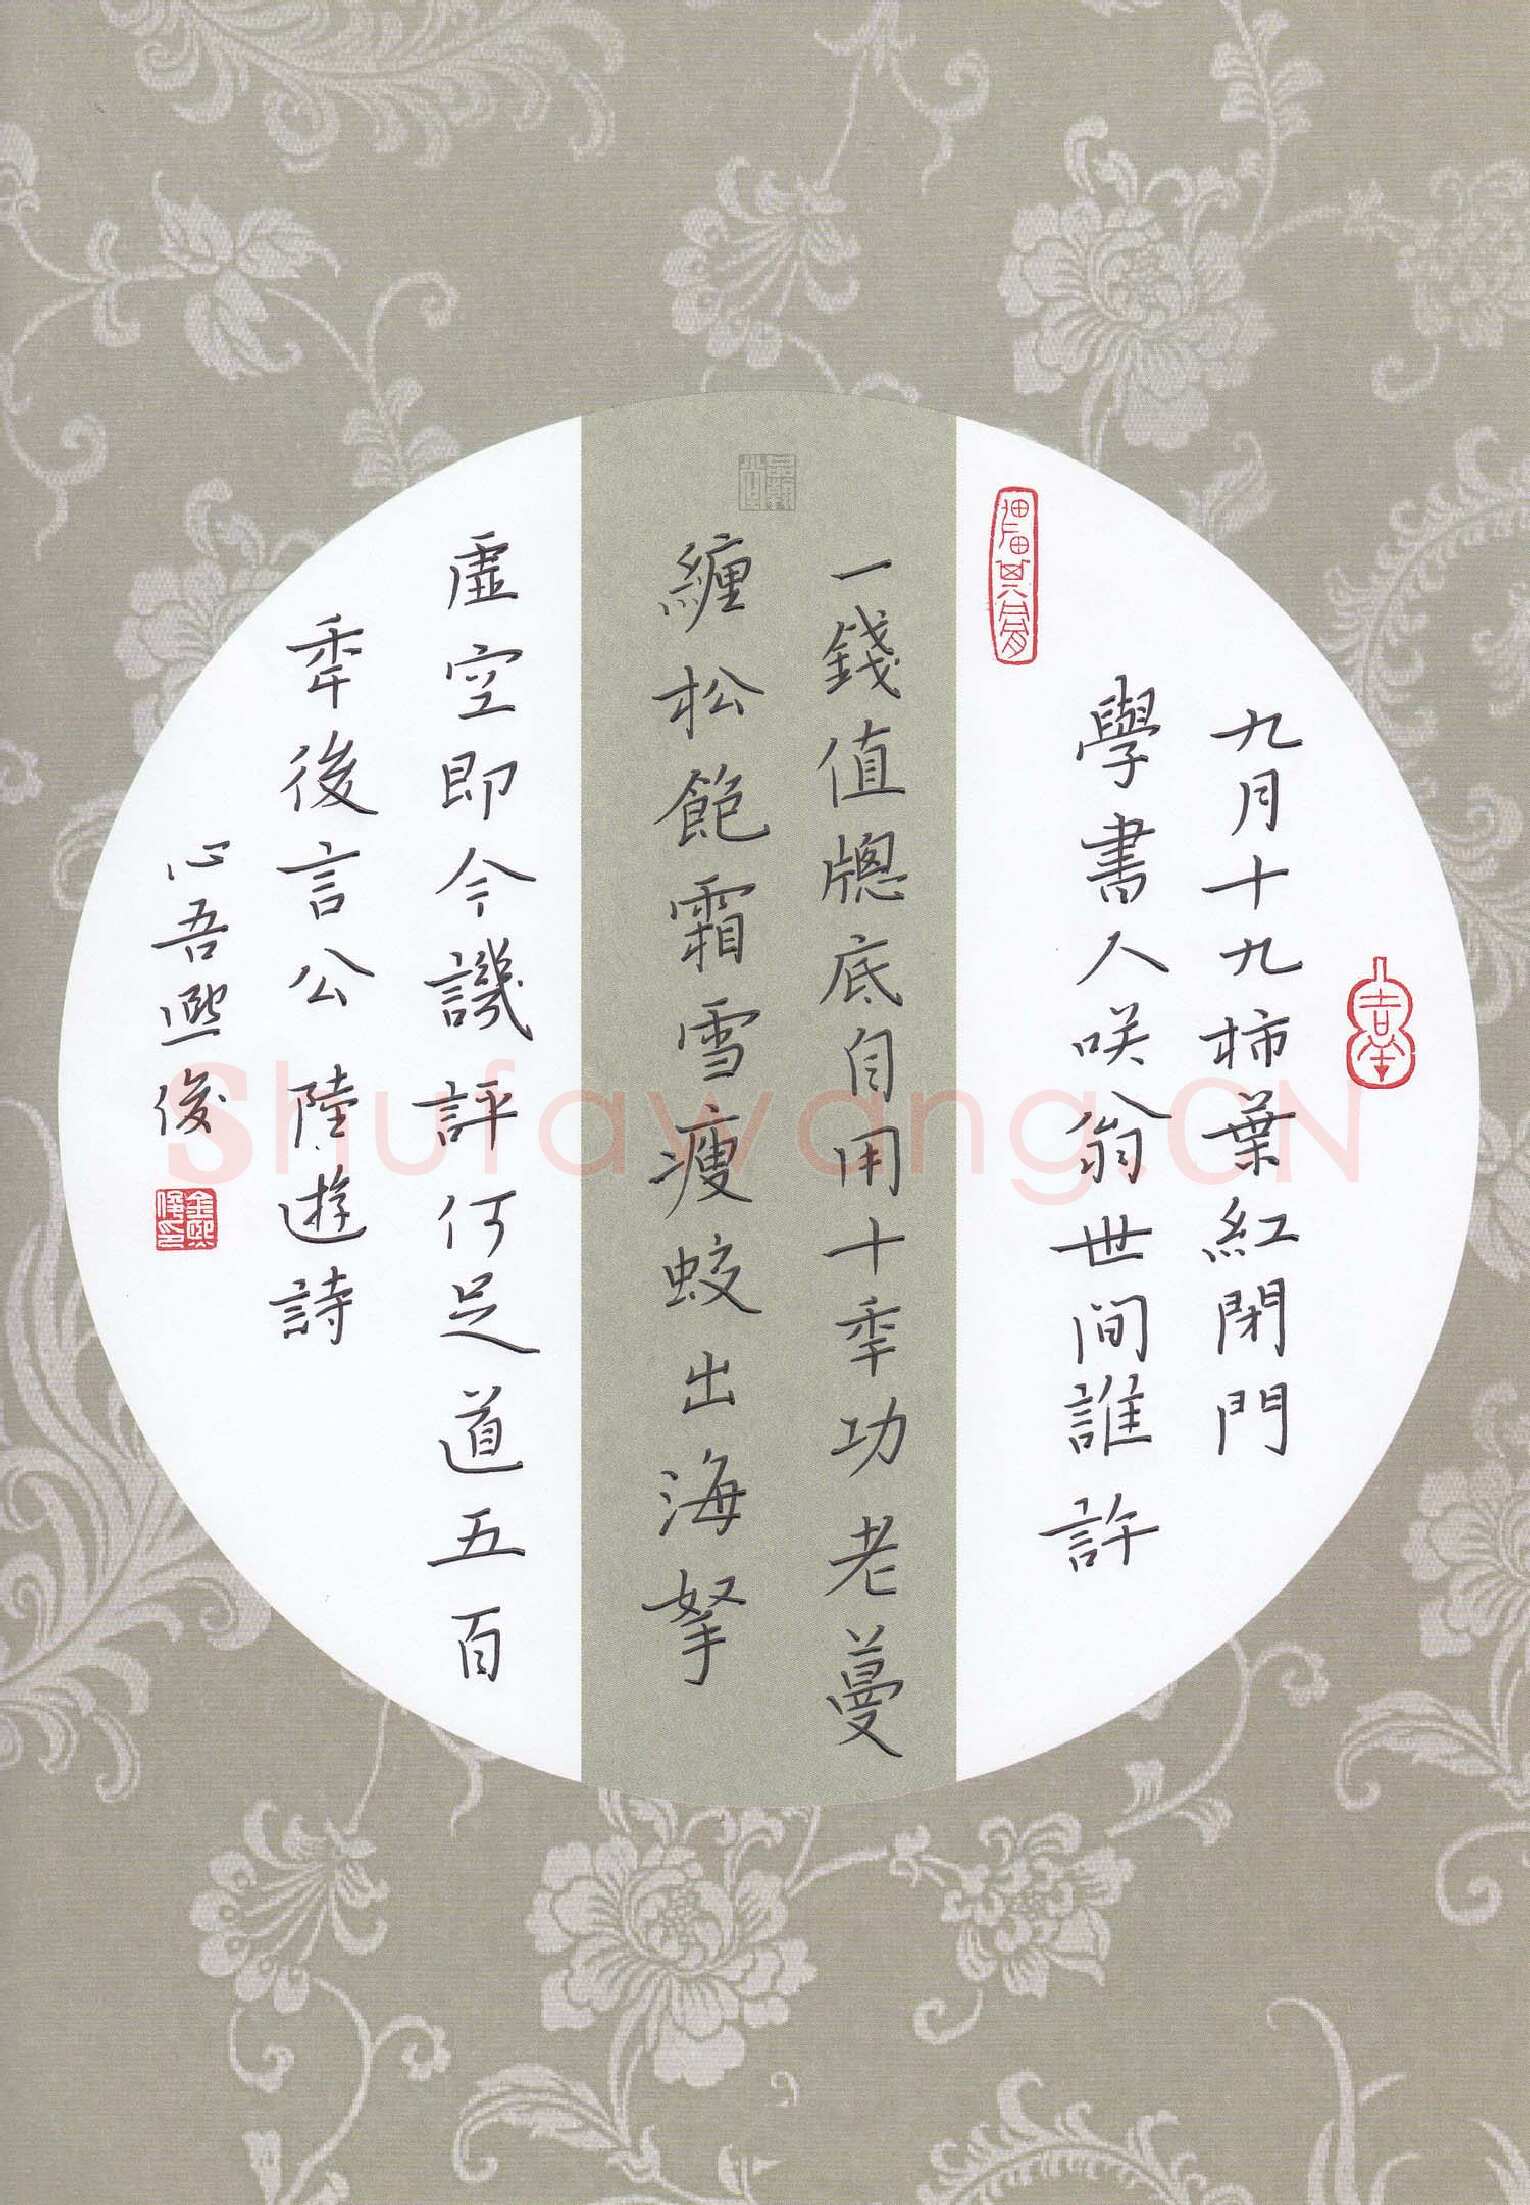 九月十九柿葉紅閉門
學書人咲翁世间誰許
一錢值牕底自用十秊功老蔓
纏松飽霜雪瘦蛟出海拏
虛空即今譏評何足道五百
秊後言公陸遊詩
心吾熙俊
吉羊
金熙俊印
Shufawang.CN